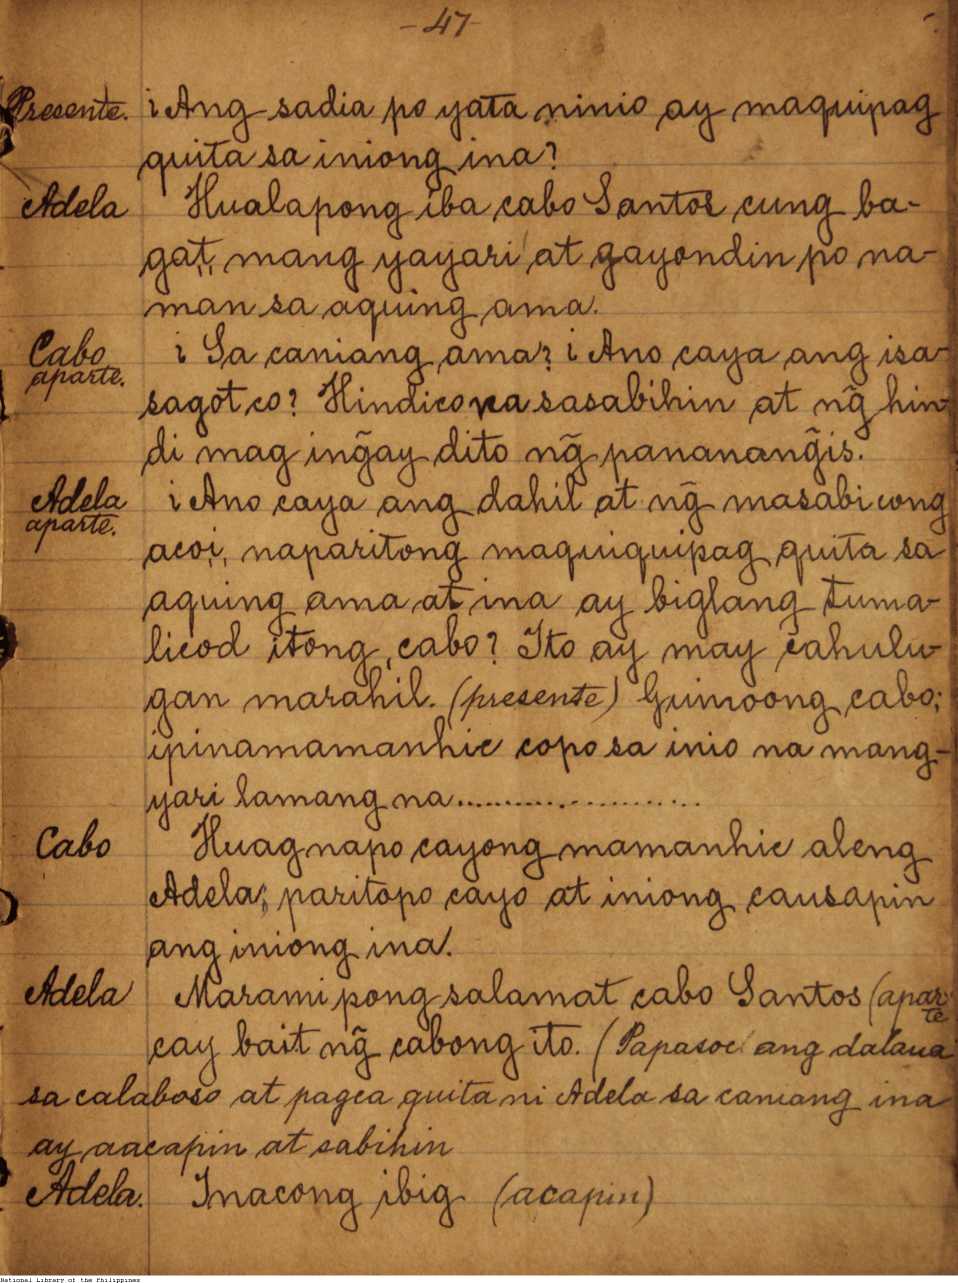 -47-
Presente. ¡Ang sadia po yata ninio ay maquipag
quita sa iniong ina?
Adela Hualapong iba cabo Santos cung ba-
gat, mang yayari at gayondin po na-
man sa aquing ama.
Cabo ¡ Sa caniang ama? ¡ Ano caya ang isa-
aparte. sagot co? Hindico na sasabihin at ng̃ hin-
di mag ing̃ay dito ng̃ pananang̃is.
Adela ¡ Ano caya ang dahil at ng̃ masabi cong
aparte. acoi, naparitong maquiquipag quita sa
aquing ama at ina ay biglang tuma-
licod itong cabo? Ito ay may cahulu-
gan marahil. (presente) Guinoong cabo;
ipinamamanhic copo sa inio na mang-
yari lamang na......................
Cabo Huag napo cayong mamanhic aleng
Adela; paritopo cayo at iniong causapin
ang iniong ina.
Adela Marami pong salamat cabo Santos (aparte
cay bait ng̃ cabong ito. (Papasoc ang dalaua
sa calaboso at pagca quita ni Adela sa caniang ina
ay aacapin at sabihin
Adela. Inacong ibig (acapin)
National Library of the Philippines